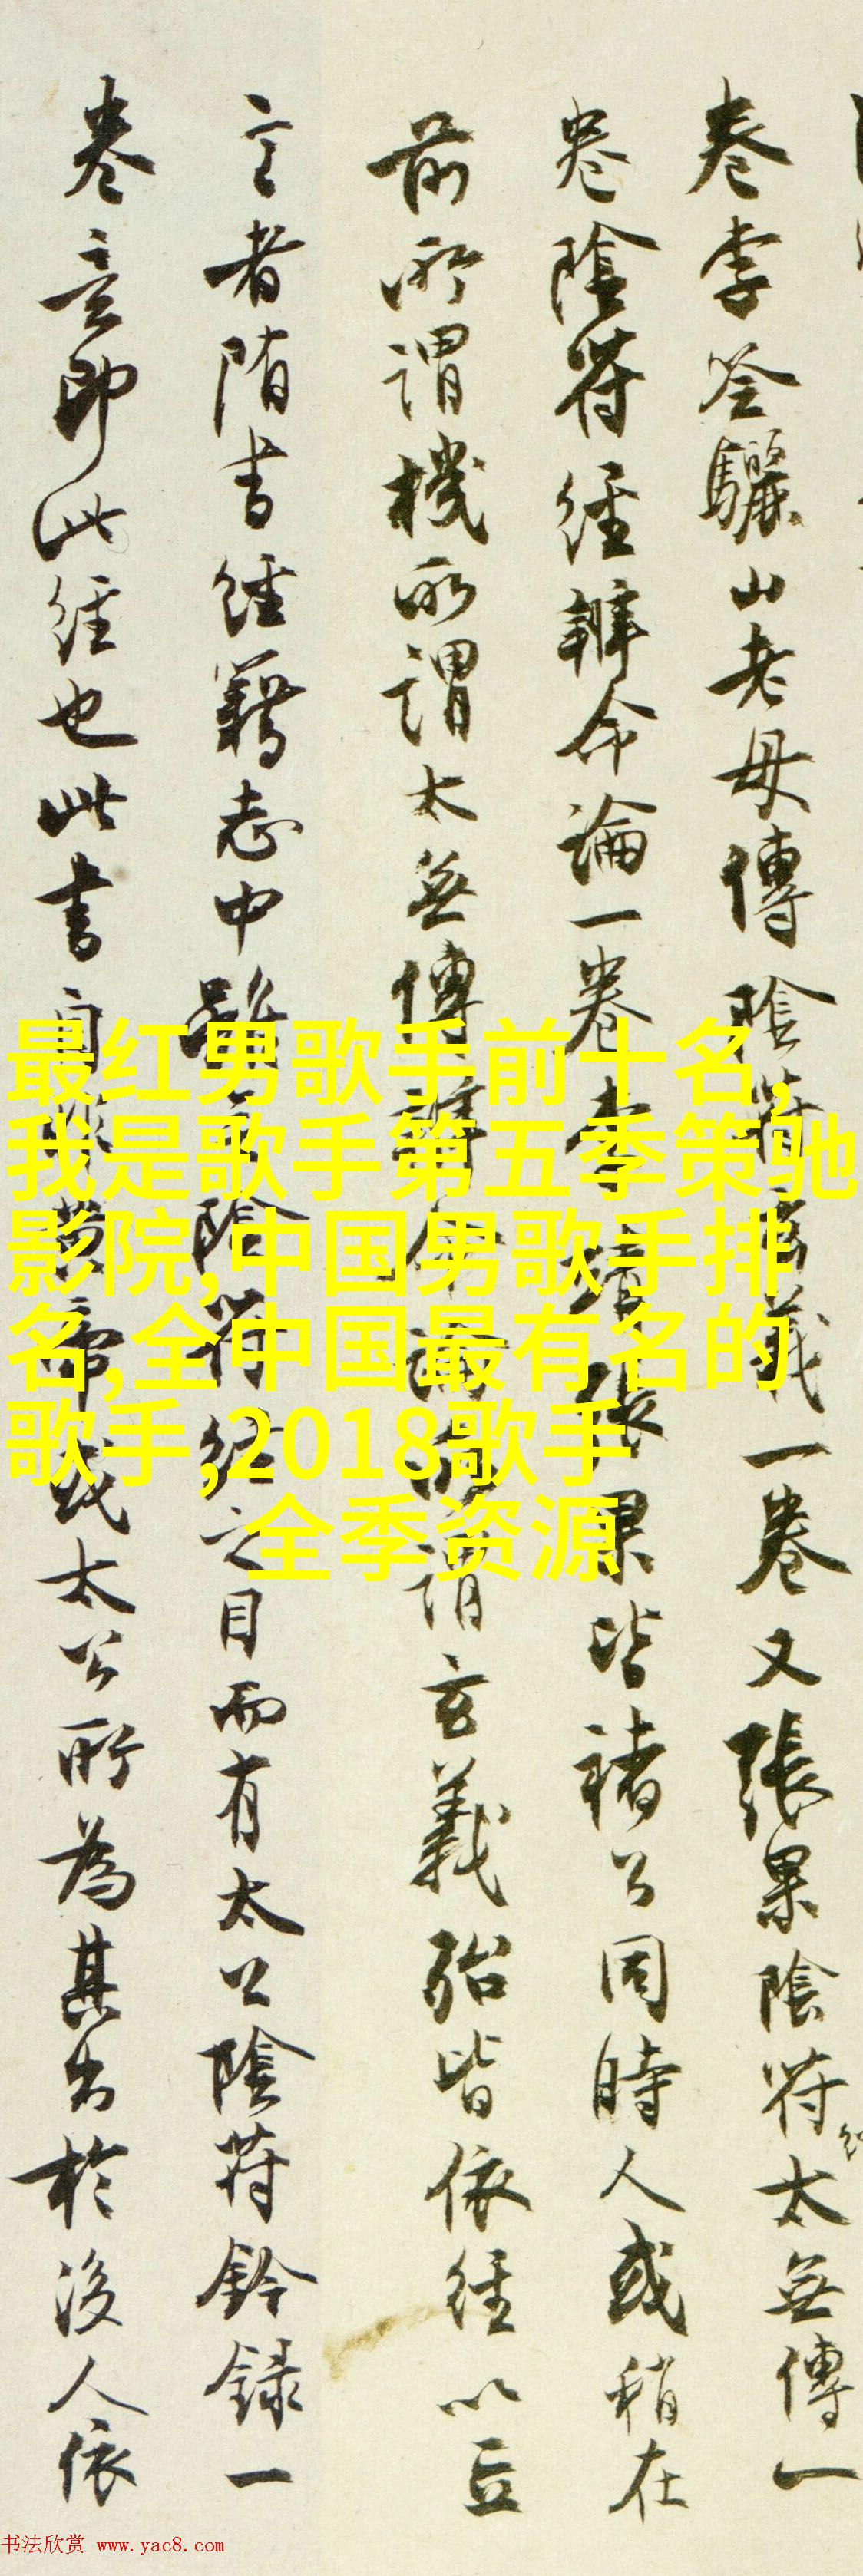 卷李筌驪山老母傳陰符玄義一卷又張果陰符太無傳一
卷陰符經辨命論一卷李張果皆褚公同時人或稍在
前所謂機所謂太無傳辨命論所謂玄義殆皆依經以立
言者隋書經籍志中雖陰符經之目而有太公陰符鈐録一
卷意即此經也此書自黃帝或太公所為其出於後人依
最红男歌手前十名,
我是歌手第五季策驰
影院,中国男歌手排
名,全中国最有名的
歌手,2018歌手
全季资源
书法欣赏 www.yac8.com